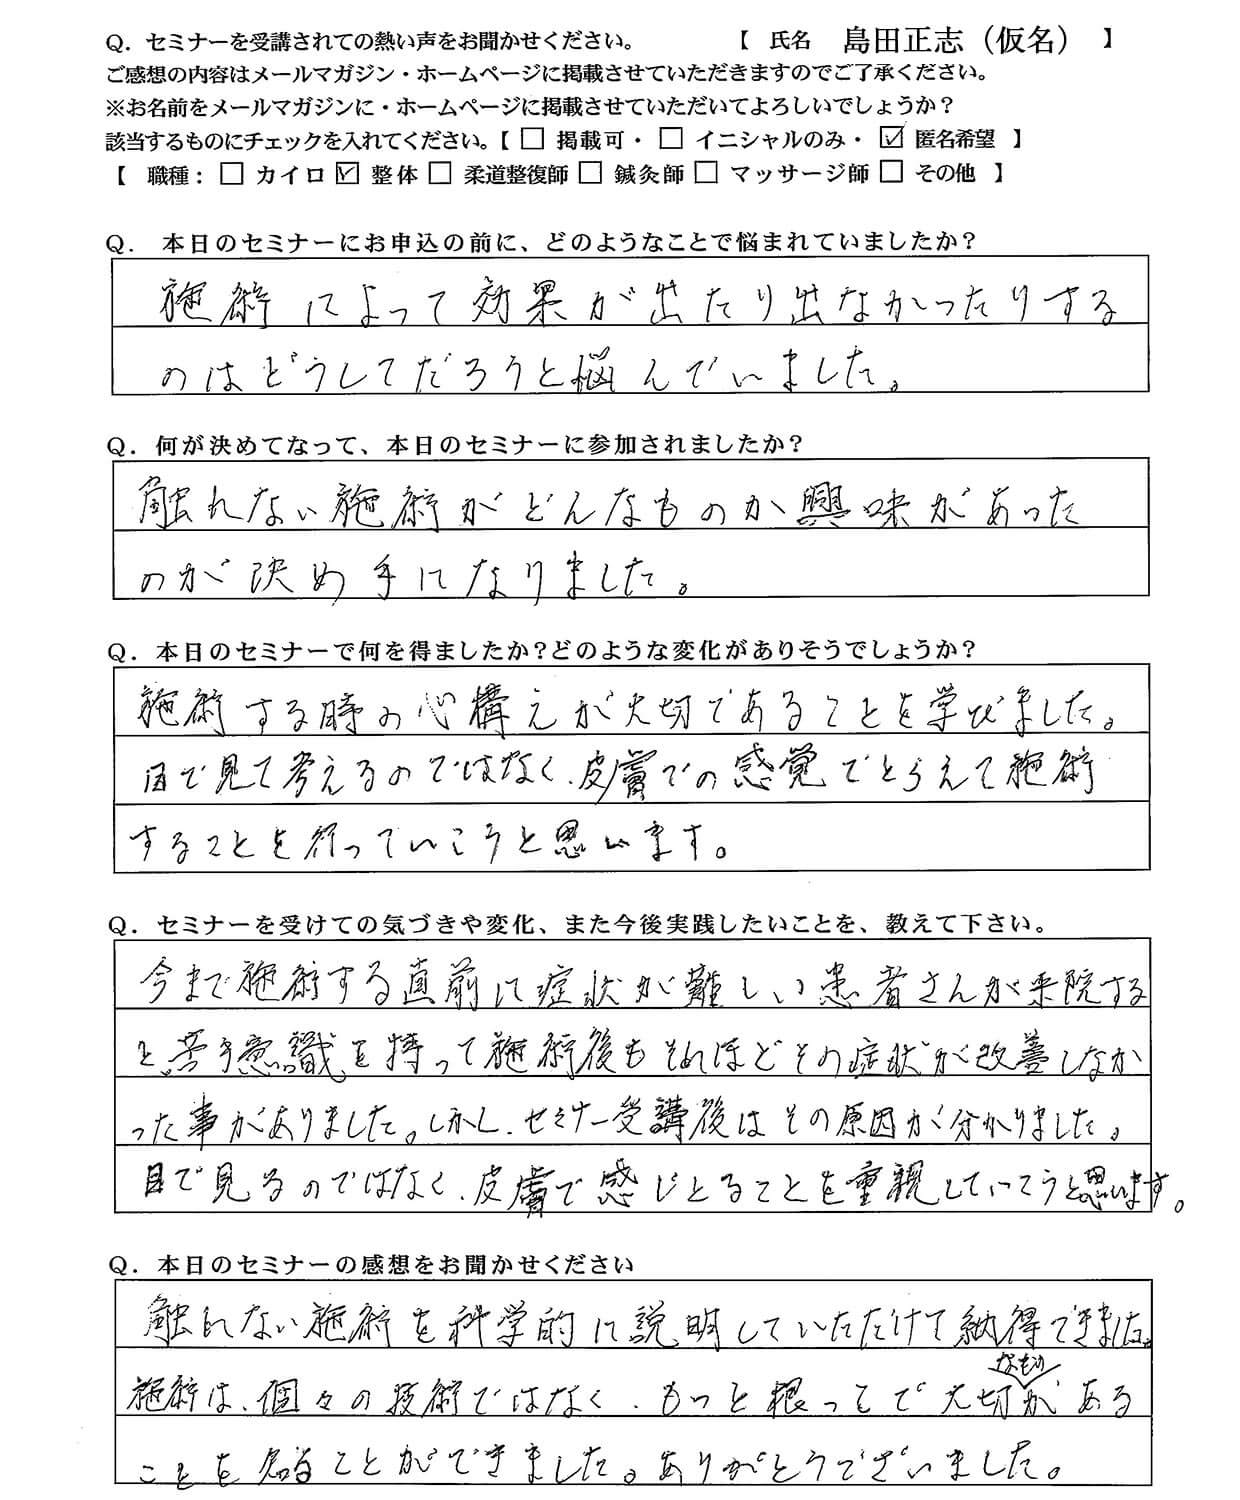 Q．セミナーを受講されての熱い声をお聞かせください。 【 氏名 島田正志（仮名） 】
ご感想の内容はメールマガジン・ホームページに掲載させていただきますのでご了承ください。
※お名前をメールマガジンに・ホームページに掲載させていただいてよろしいでしょうか？
該当するものにチェックを入れてください。【 □ 掲載可・ □ イニシャルのみ・ ☑ 匿名希望 】
【 職種： □ カイロ ☑ 整体 □ 柔道整復師 □ 鍼灸師 □ マッサージ師 □ その他 】
Q． 本日のセミナーにお申込の前に、どのようなことで悩まれていましたか？
施術によって効果が出たり出なかったりする
のはどうしてだろうと悩んでいました。
Q．何が決めてなって、本日のセミナーに参加されましたか？
触れない施術がどんなものか興味があった
のが決め手になりました。
Q．本日のセミナーで何を得ましたか？どのような変化がありそうでしょうか？
施術する時の心構えが大切であることを学びました。
目で見て考えるのではなく、皮膚での感覚でとらえて施術
することを行っていこうと思います。
Q．セミナーを受けての気づきや変化、また今後実践したいことを、教えて下さい。
今まで施術する直前に症状が難しい患者さんが来院する
と、苦手意識を持って施術後もそれほどその症状が改善しなか
った事がありました。しかし、セミナー受講後はその原因が分かりました。
目で見るのではなく、皮膚で感じとることを重視していこうと思います。
Q．本日のセミナーの感想をお聞かせください
触れない施術を科学的に説明していただけて納得できました。
施術は、個々の技術ではなく、もっと根っこで大切なものがある
ことを知ることができました。ありがとうございました。